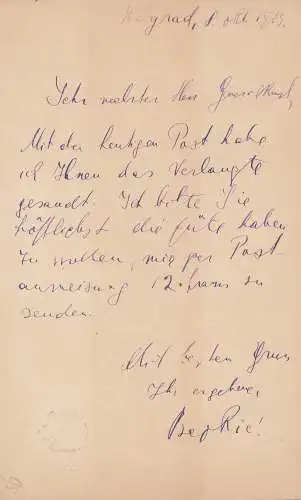 8. Okt. 19
Sehr Herr
Mit der heutigen Post habe
ich Ihnen das Verlangte
gesandt. Ich bitte Sie
höfflichst die güte haben
zu wollen, mir per Post
anweisung 12. frans zu
senden.
Mit besten Gruss
Ihr ergebener